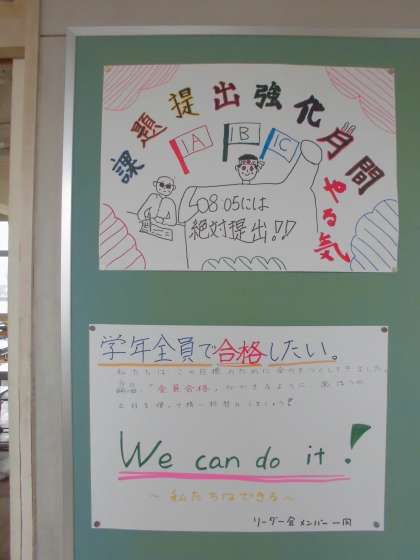 課題提出強化月間
やる気
1A 1B 1C
08:05には
絶対提出!!
学年全員で合格したい。
私たちは、この目標のために
「全員合格」
We can do it!
~私たちはできる~
リーダー会メンバー一同